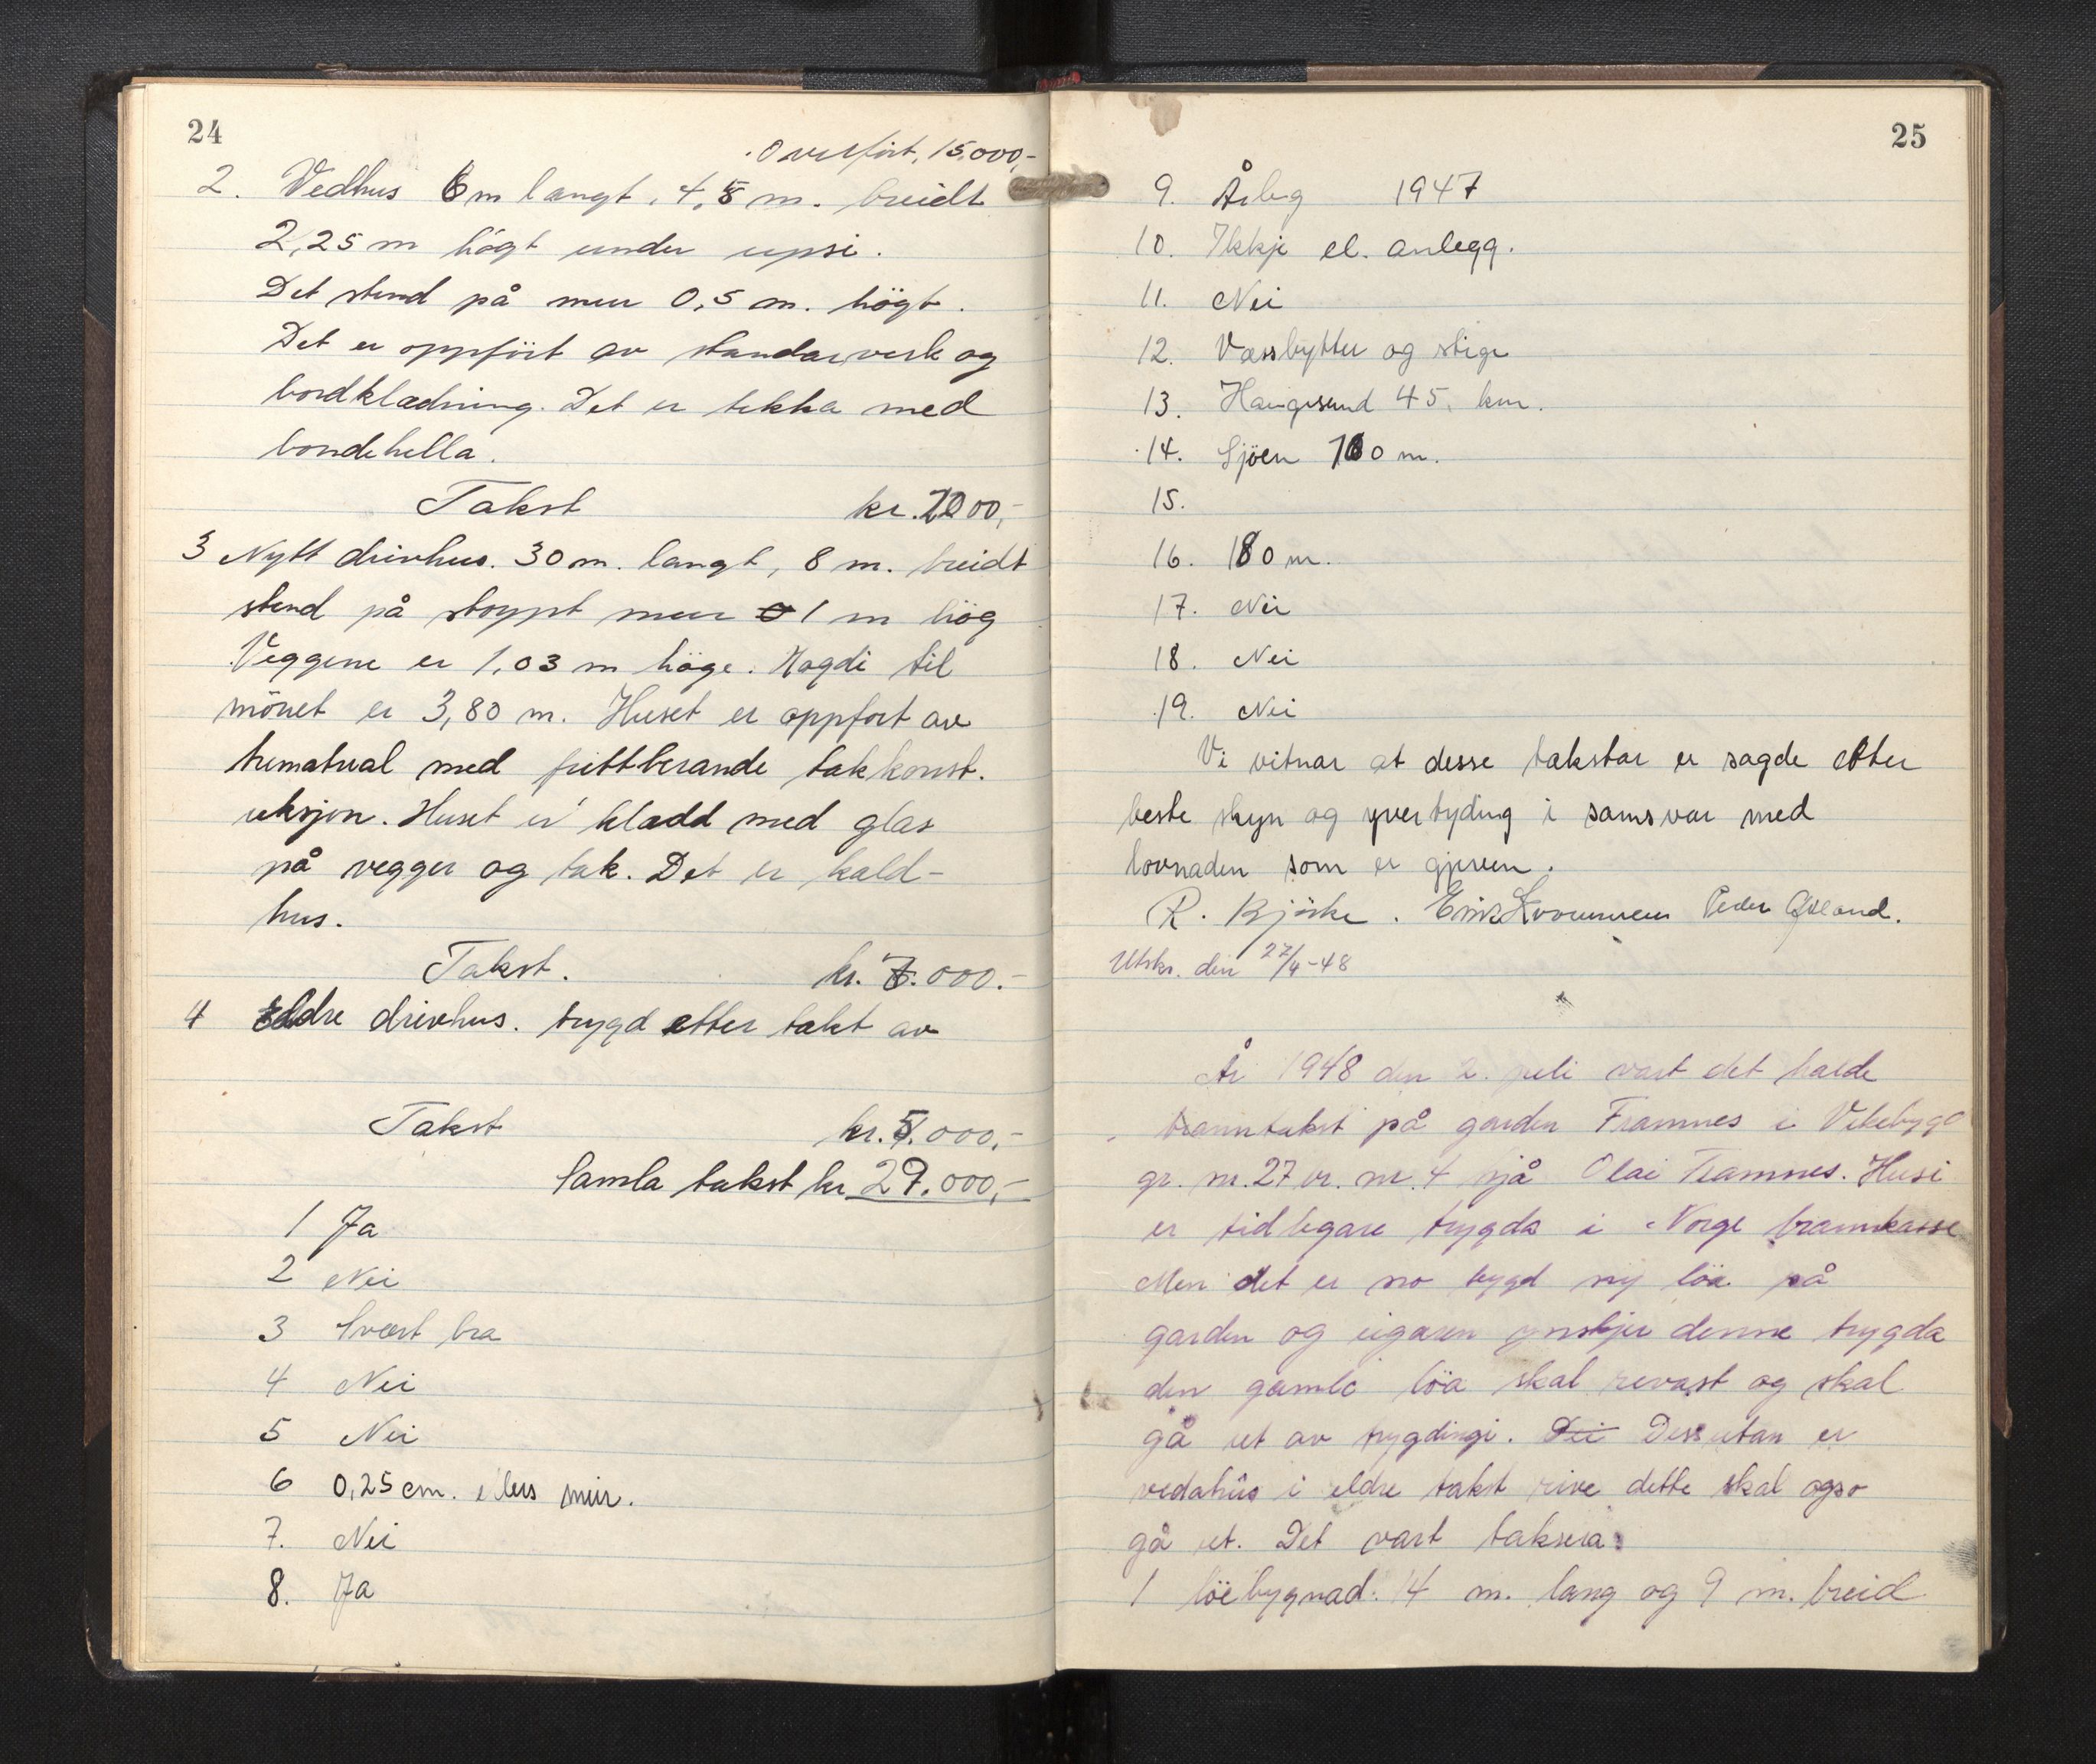 24
Overført, 15.000,-
2. Vedhus 6 m langt, 4,5 m. breidt
2,25 m högt under upsi.
Det stend på mur 0,5 m. högt.
Det er oppfört av standarverk og
bordklædning. Det er tekka med
bondehella.
Takst kr. 2000,-
3 Nytt drivhus. 30 m. langt, 8 m. breidt
stend på stoypt mur 1 m hög
Veggene er 1,03 m höge. Hogdi til
mönet er 3,80 m. Huset er oppfort av
trematrial med frittberande takkonst.
uksjon. Huset er kladd med glas
på vegger og tak. Det er kald-
hus.
Takst. kr. 7.000.-
4 eldre drivhus. trygd etter takt av
Takst kr. 5.000,-
Samla takst kr 29.000,-
1 Ja
2 Nei
3 Svært bra
4 Nei
5 Nei
6 0,25 cm. ellers mur.
7. Nei
8. Ja
25
9. Årleg 1947
10. Ikkje el. anlegg.
11. Nei
12. Vassbytter og stige
13. Haugesund 45. km.
14. Sjöen 100 m.
15.
16. 180 m.
17. Nei
18. Nei
19. Nei
Vi vitnar at desse takstar er sagde etter
beste skyn og yvertyding i samsvar med
lovnaden som er gjeven.
R. Bjørke. Erik Kvammen Peder
Utskr. den 27/4-48
År 1948 den 2. juli vart det halde
branntakst på garden Framnes i Vikebygd
gr. nr. 27 br. nr. 4 hjå Olai Framnes. Husi
er tidlegare trygda i Norge brannkasse
Men det er no bygd ny löa på
garden og eigaren ynskjer denne trygda
den gamle löa skal rivast og skal
gå ut av trygdingi. Dei Dessutan er
vedahus i eldre takst rive dette skal ogso
gå ut. Det vart taksera:
1 löebygnad: 14 m. lang og 9 m. breid